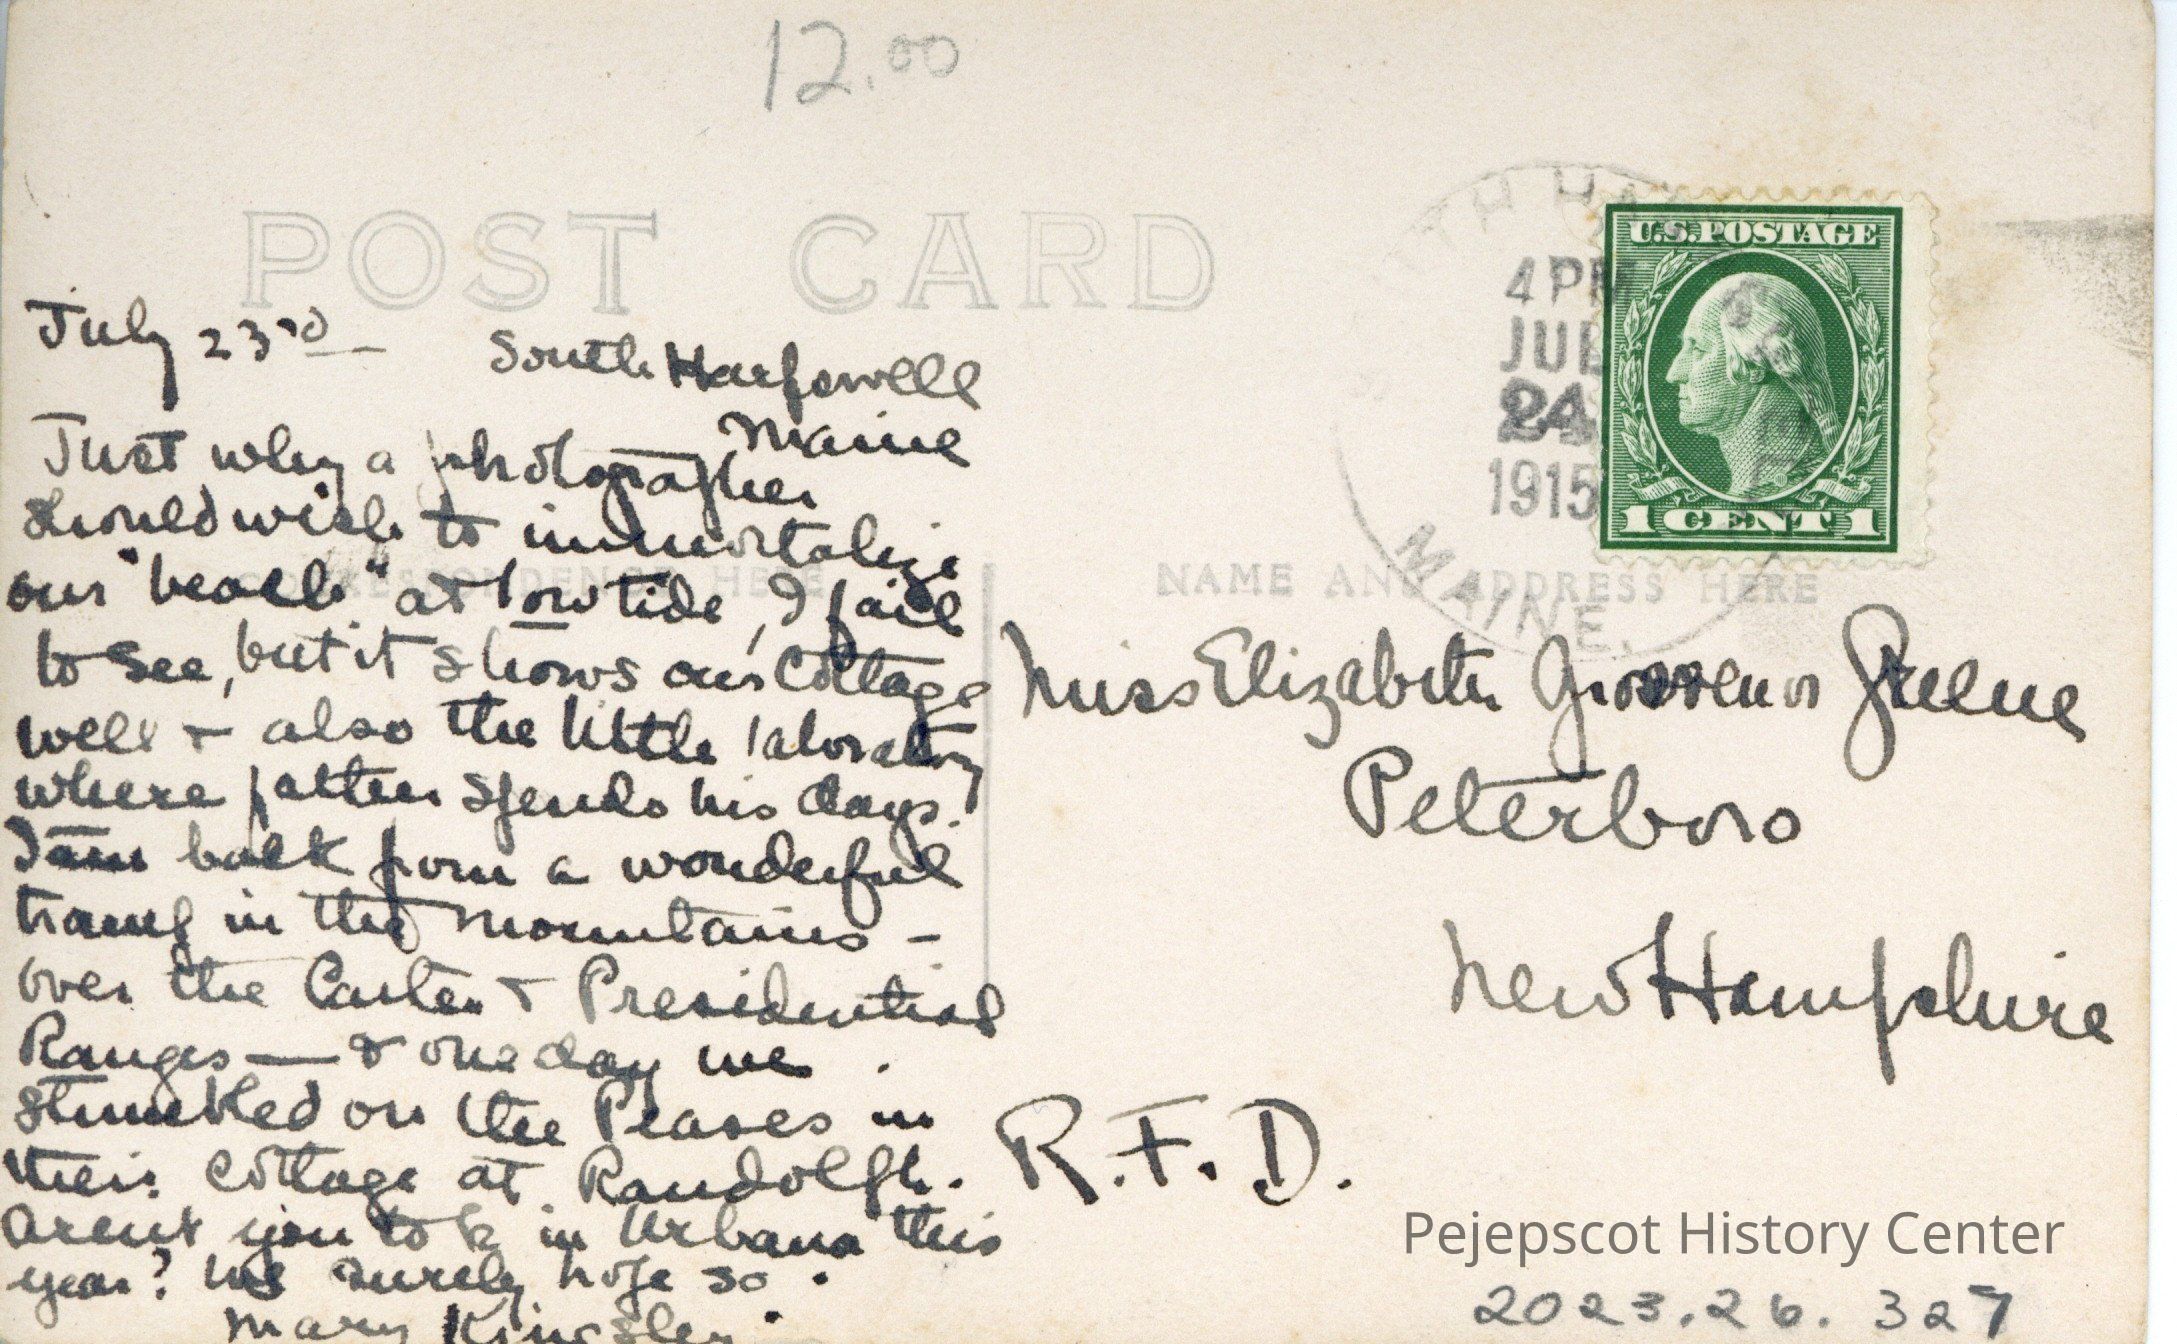 12.00
POST CARD
July 23rd South Harpswell
Maine
Just why a photographer
should wish to immortalize
our "beach" at low tide, I fail
to see, but it shows our cottage
well + also the little laboratory
where father spends his days.
I am back from a wonderful
tramp in the mountains -
over the Carter + Presidential
Ranges — & one day we
stumbled on the Peases in
their cottage at Randolph.
Arent you to be in Urbana this
year? We surely hope so.
Mary Kingsley.
CORRESPONDENCE HERE
4 PM
JUL
24
1915
MAINE.
U.S. POSTAGE
1 CENT 1
NAME AND ADDRESS HERE
Miss Elizabeth Grosvenor Greene
Peterboro
New Hampshire
R.F.D.
Pejepscot History Center
2023.26.327